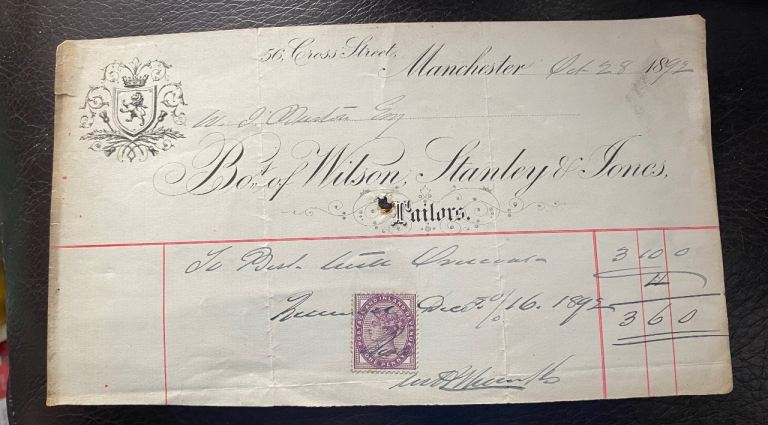 56, Cross Street,
Manchester Oct 28 1892
W. J. Esq
Bot. of Wilson, Stanley & Jones,
Tailors.
To Best 3 10 0
4
Dec 16. 1892
3 6 0
POSTAGE AND INLAND REVENUE
ONE PENNY